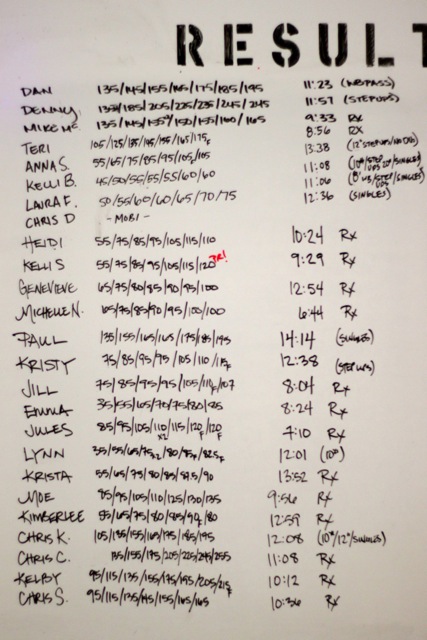 RESULT
DAN 135/145/155/165/175/185/195 11:23 (NO PASS)
DENNY 185/205/225/235/245/245 11:57 (STEPUPS)
MIKE MC. 135/145/155/150/155/160/165 9:33 RX
TERI 105/125/135/145/155/165/175F 8:56 RX
ANNA S. 55/65/75/85/95/105/105 13:38
KELLI B. 45/50/55/55/55/60/60 11:08
LAURA F. 50/55/60/60/65/70/75 11:06
CHRIS D - MOBI - 12:36 (SINGLES)
HEIDI 55/75/85/95/105/115/110 10:24 RX
KELLI S 55/75/85/95/105/115/120 PR! 9:29 RX
GENEVIEVE 65/75/80/85/90/95/100 12:54 RX
MICHELLE N. 65/75/85/90/95/100/100 6:44 RX
PAUL 135/155/165/165/175/185/195 14:14 (SINGLES)
KRISTY 75/85/95/95/105/110/115F 12:38 (STEP UPS)
JILL 75/85/95/95/105/110F/107 8:04 RX
EMMA 35/55/65/70/75/80/85 8:24 RX
JULES 85/95/105/110 X2/115/120F/120F 7:10 RX
LYNN 35/55/65/75X2/80/85F/82.5F 12:01 (10#)
KRISTA 55/65/75/80/85/87.5/90 13:52 RX
MOE 85/95/105/110/125/130/135 9:56 RX
KIMBERLEE 55/65/75/80/85/90F/80 12:59 RX
CHRIS K. 105/135/155/165/175/185/195 12:08 (10#/12"/SINGLES)
CHRIS C. 135/155/175/205/225/245/255 11:08 RX
KELBY 95/115/135/155/175/195/205/215F 10:12 RX
CHRIS S. 95/115/135/145/155/165/165 10:36 RX